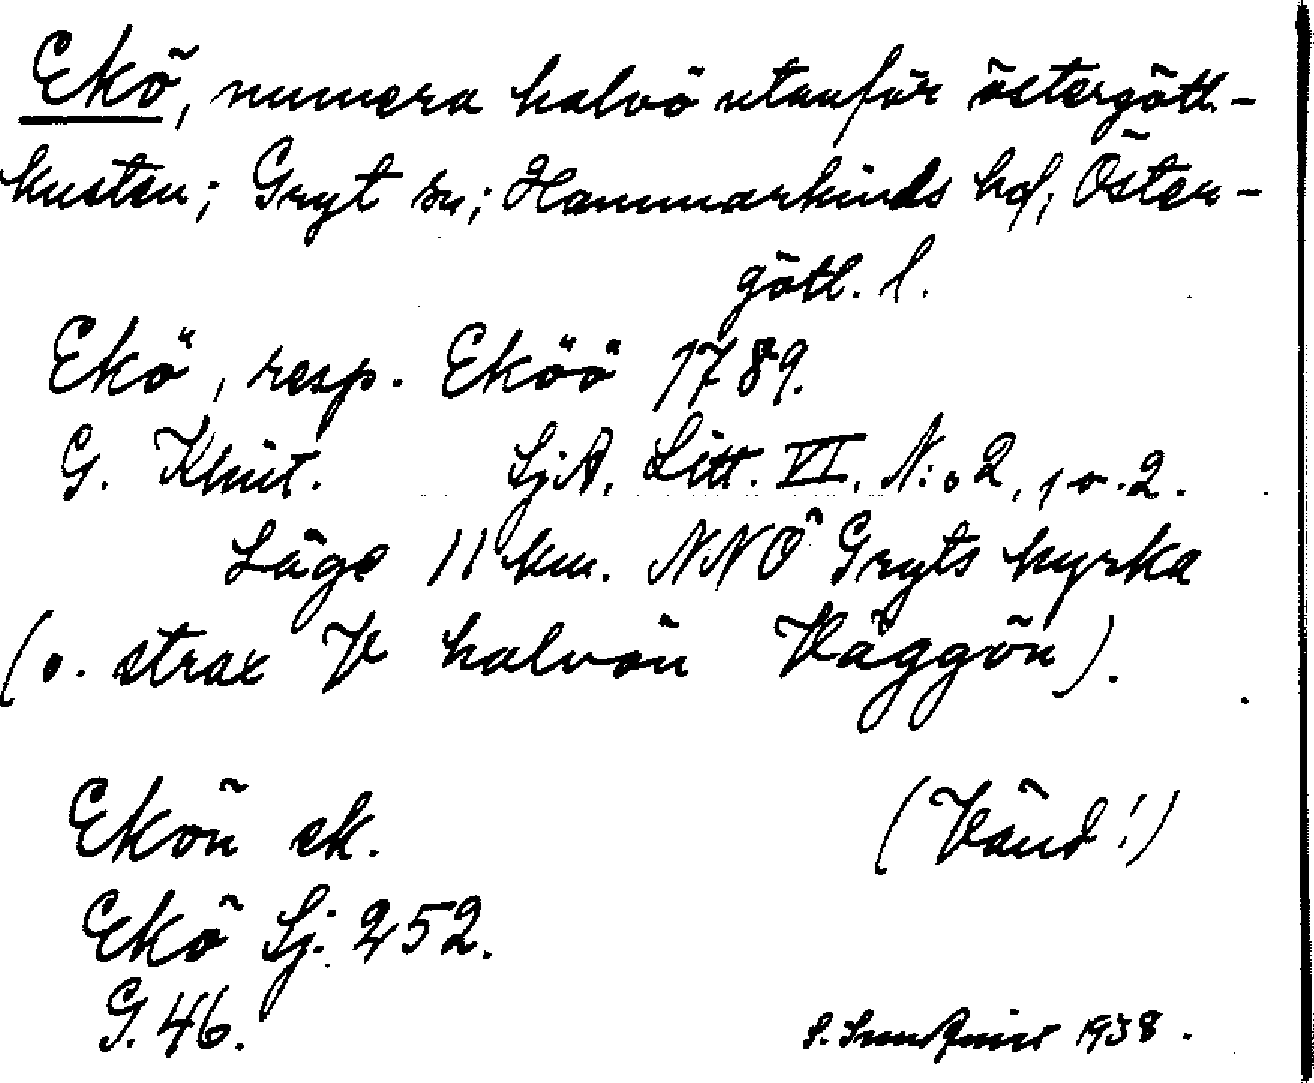 Ekö, numera halvö utanför östergötl.-
kusten; Gryt sn; Hammarkinds hd, Öster-
götl. l.
Ekö, resp. Eköö 1789.
G. Klint. SjA. Litt. VI. N:o 2, 1 o. 2.
Läge 11 km. NNÖ Gryts kyrka
(o. strax V halvön Väggön).
Ekön ek.
(Vänd!)
Ekö Sj. 252.
G. 46.
1938.